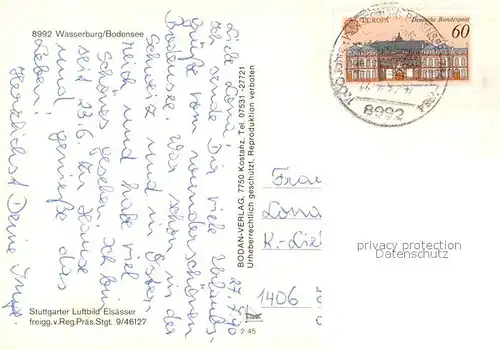 8992 Wasserburg/Bodensee
Liebe Lona,
ich sende Dir viele Urlaubs-
grüße vom wunderschönen
Bodensee. War schon in der
Schweiz und in Öster-
reich und habe viel
schönes gesehen. Ich bin
seit 23.6. zu Hause
und genieße das
Leben!
Herzlichst Deine
27.7.90
Stuttgarter Luftbild Elsässer
freigg.v.Reg.Präs.Stgt. 9/46127
BODAN-VERLAG, 7750 Kostanz, Tel. 07531-27721
Urheberrechtlich geschützt, Reproduktion verboten
2-45
EUROPA Deutsche Bundespost
60
8992
Frau
Lona
K.-Lie
1406
privacy protection
OldthingCards.de